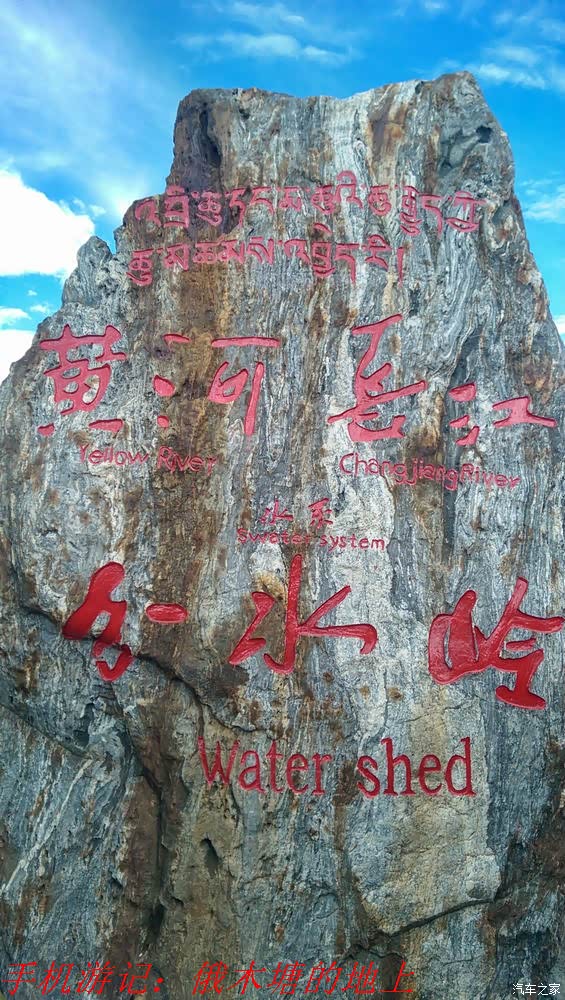 འབྲི་ཆུ་དང་རྨ་ཆུའི་ཆུ་རྒྱུད་ཀྱི
ཆུ་མཚམས་འབྱེད་རི།
黄河 长江
Yellow River ChangjiangRiver
水系
Swater system
分水岭
Water shed
手机游记：俄木塘的地上
汽车之家